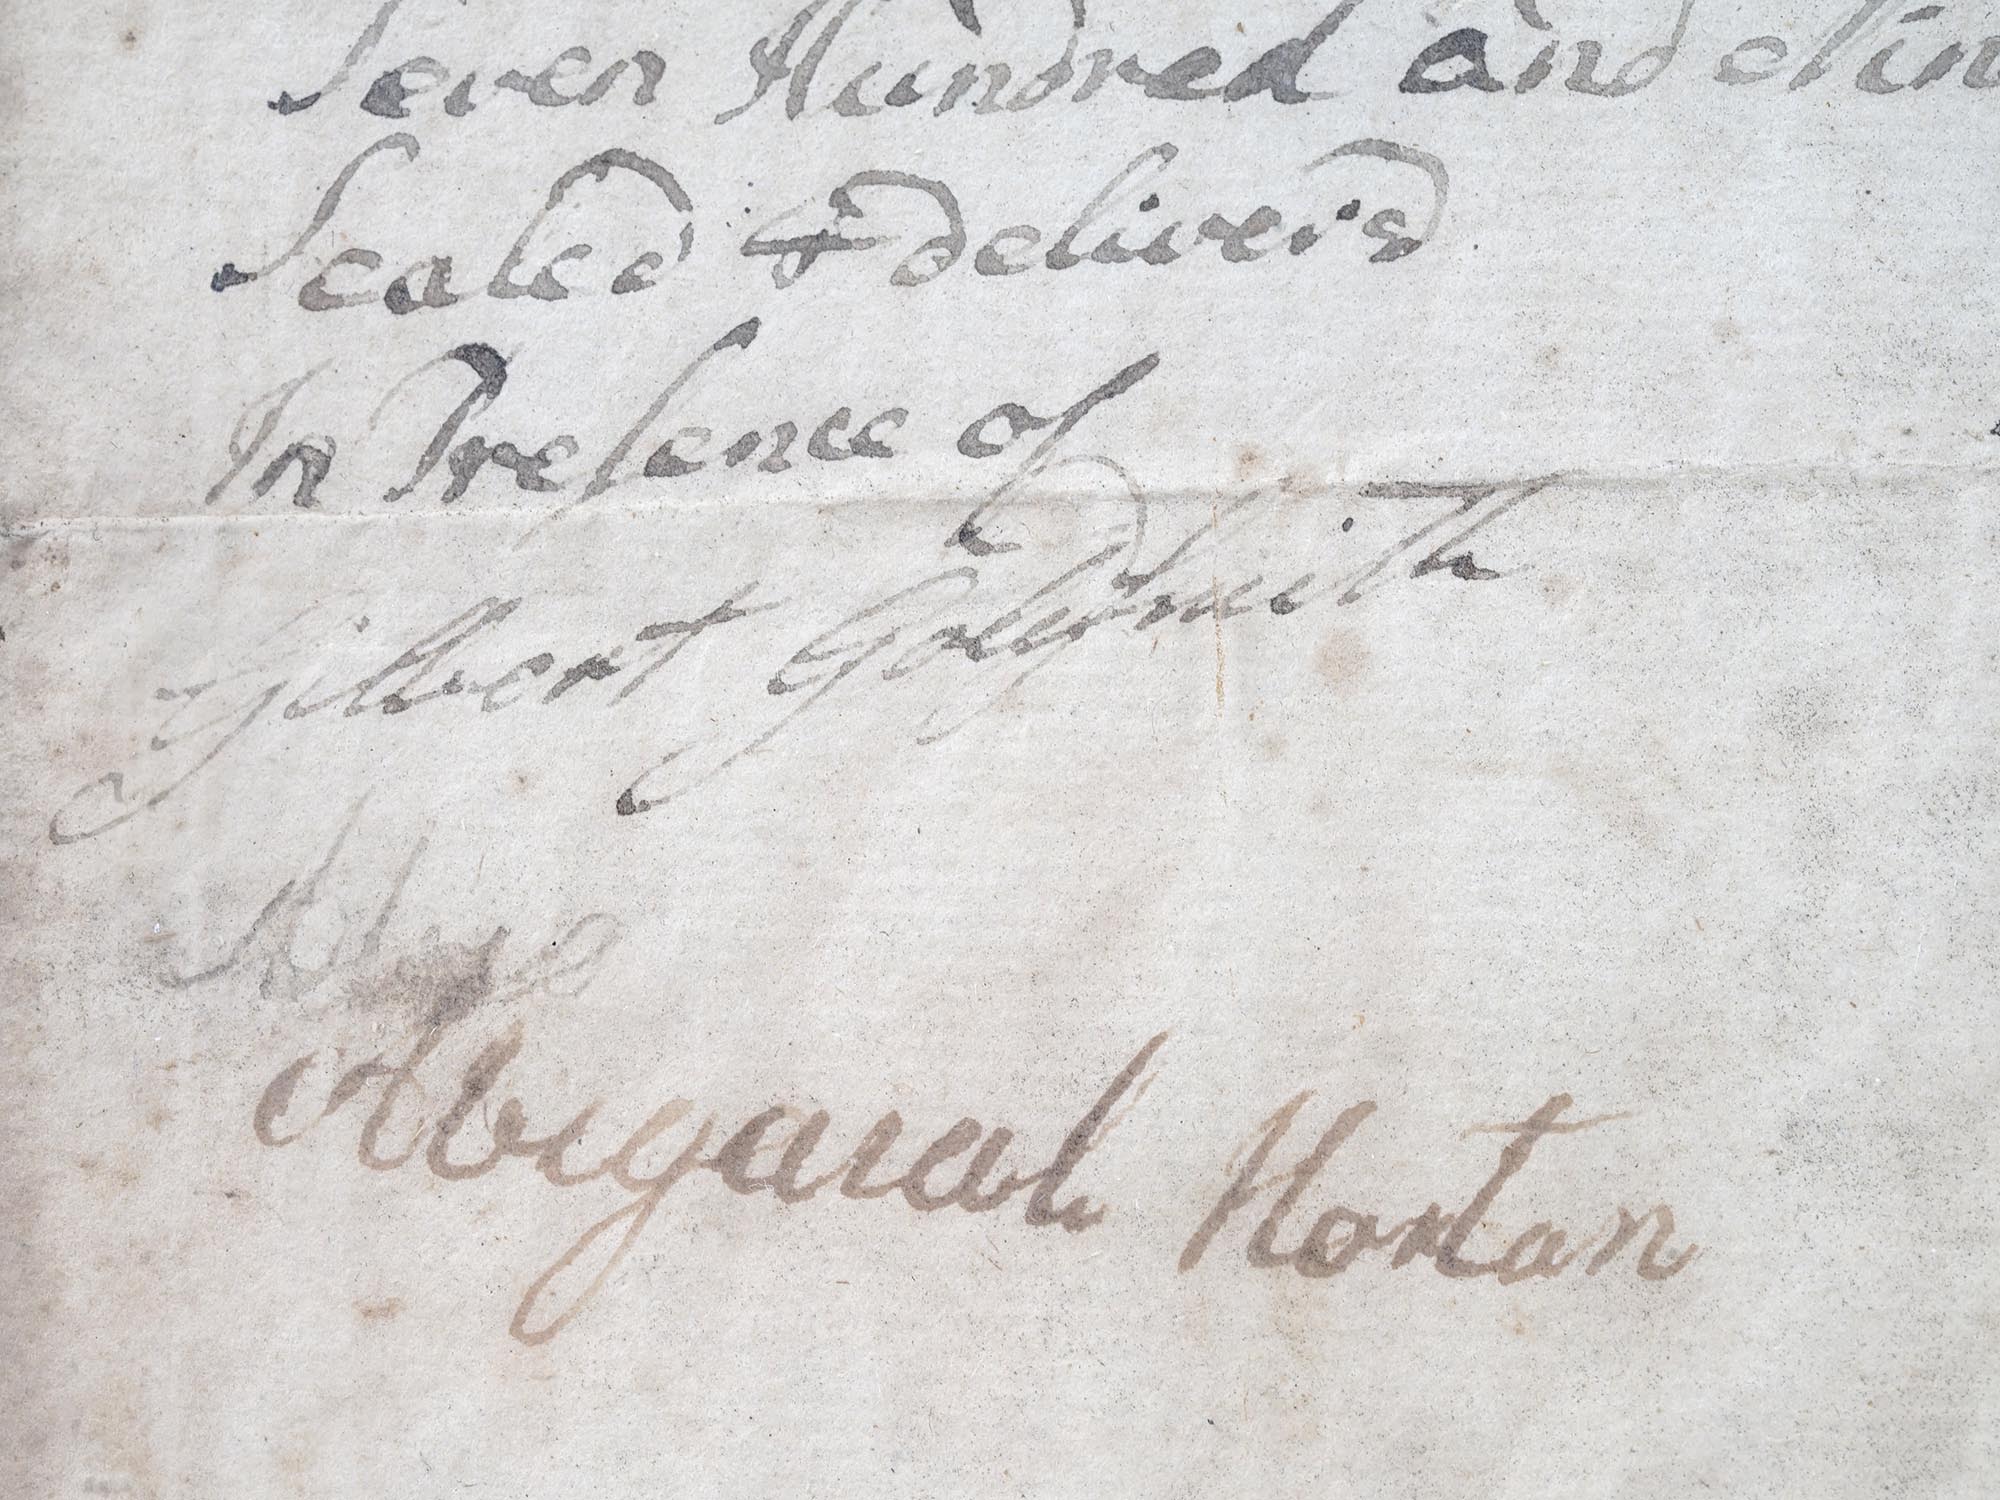 Seven Hundred and Nin
Sealed & deliver'd
In Presence of
Gilbert Goldsmith
Abigaral Hortan